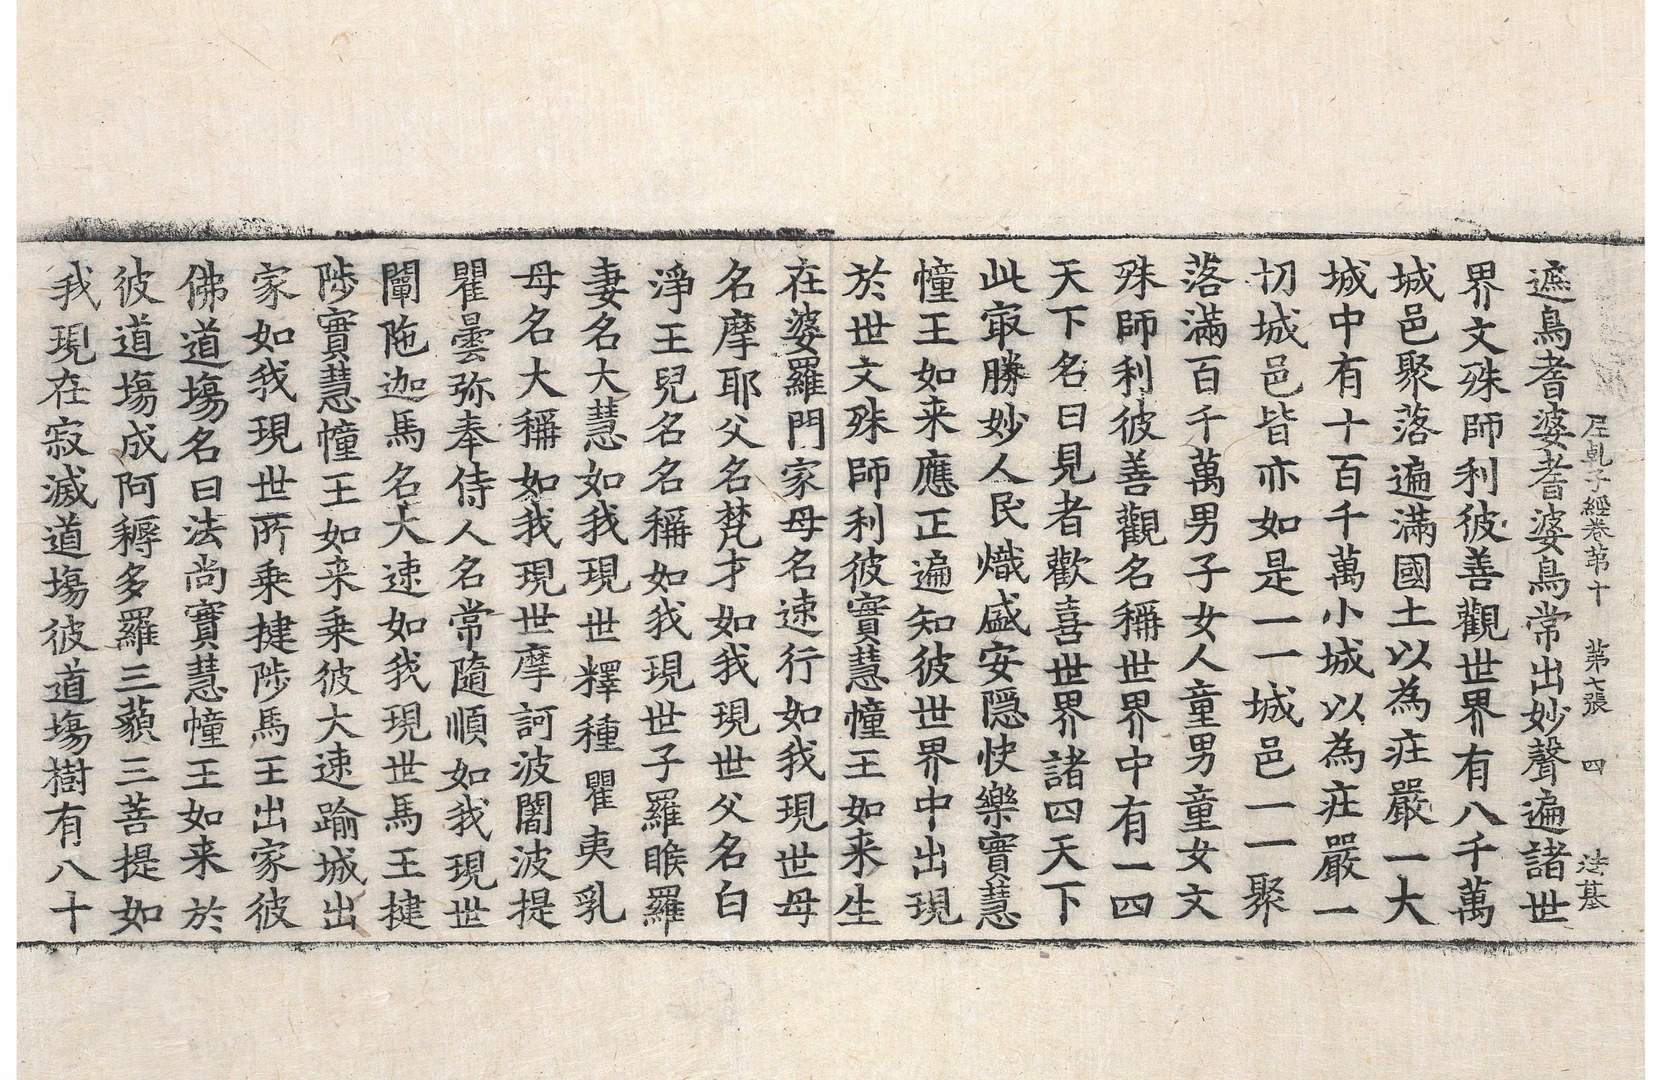 尼乹子經卷第十 第七張 四 法基
遮鳥耆婆耆婆鳥常出妙聲遍諸世
界文殊師利彼善觀世界有八千萬
城邑聚落遍滿國土以為疰嚴一大
城中有十百千萬小城以為疰嚴一
切城邑皆亦如是一一城邑一一聚
落滿百千萬男子女人童男童女文
殊師利彼善觀名稱世界中有一四
天下名曰見者歡喜世界諸四天下
此㝡勝妙人民熾盛安隱快樂實慧
幢王如来應正遍知彼世界中出現
於世文殊師利彼實慧幢王如来生
在婆羅門家母名速行如我現世母
名摩耶父名梵才如我現世父名白
淨王兒名名稱如我現世子羅睺羅
妻名大慧如我現世釋種瞿夷乳
母名大稱如我現世摩訶波闍波提
瞿曇弥奉侍人名常隨順如我現世
闡陁迦馬名大速如我現世馬王揵
陟實慧幢王如来乘彼大速踰城出
家如我現世所乘揵陟馬王出家彼
佛道塲名曰法尚實慧幢王如来於
彼道塲成阿耨多羅三藐三菩提如
我現在寂滅道塲彼道塲樹有八十